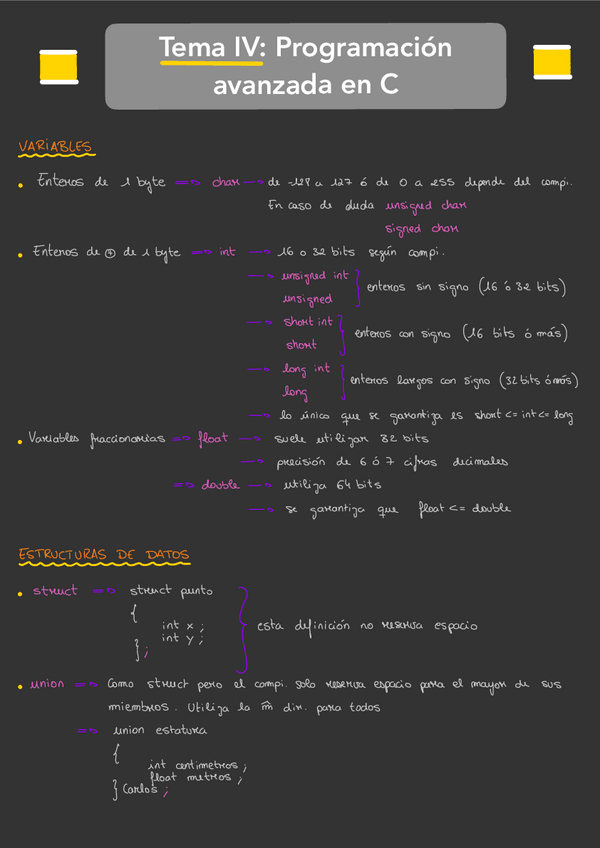 Tema IV: Programación
avanzada en C
VARIABLES
• Enteros de 1 byte => char → de -128 a 127 ó de 0 a 255 depende del compi.
En caso de duda unsigned char
signed char
• Enteros de ⊕ de 1 byte => int → 16 o 32 bits según compi.
→ unsigned int
unsigned } enteros sin signo (16 ó 32 bits)
→ short int
short } enteros con signo (16 bits ó más)
→ long int
long } enteros largos con signo (32 bits ó más)
→ lo único que se garantiza es short <= int <= long
• Variables fraccionarias => float → suele utilizar 32 bits
→ precisión de 6 ó 7 cifras decimales
=> double → utiliza 64 bits
→ se garantiza que float <= double
ESTRUCTURAS DE DATOS
• struct => struct punto
{
int x ;
int y ;
} ;
esta definición no reserva espacio
• union => Como struct pero el compi. solo reserva espacio para el mayor de sus
miembros. Utiliza la m̂ dir. para todos
=> union estatura
{
int centimetros ;
float metros ;
} Carlos ;